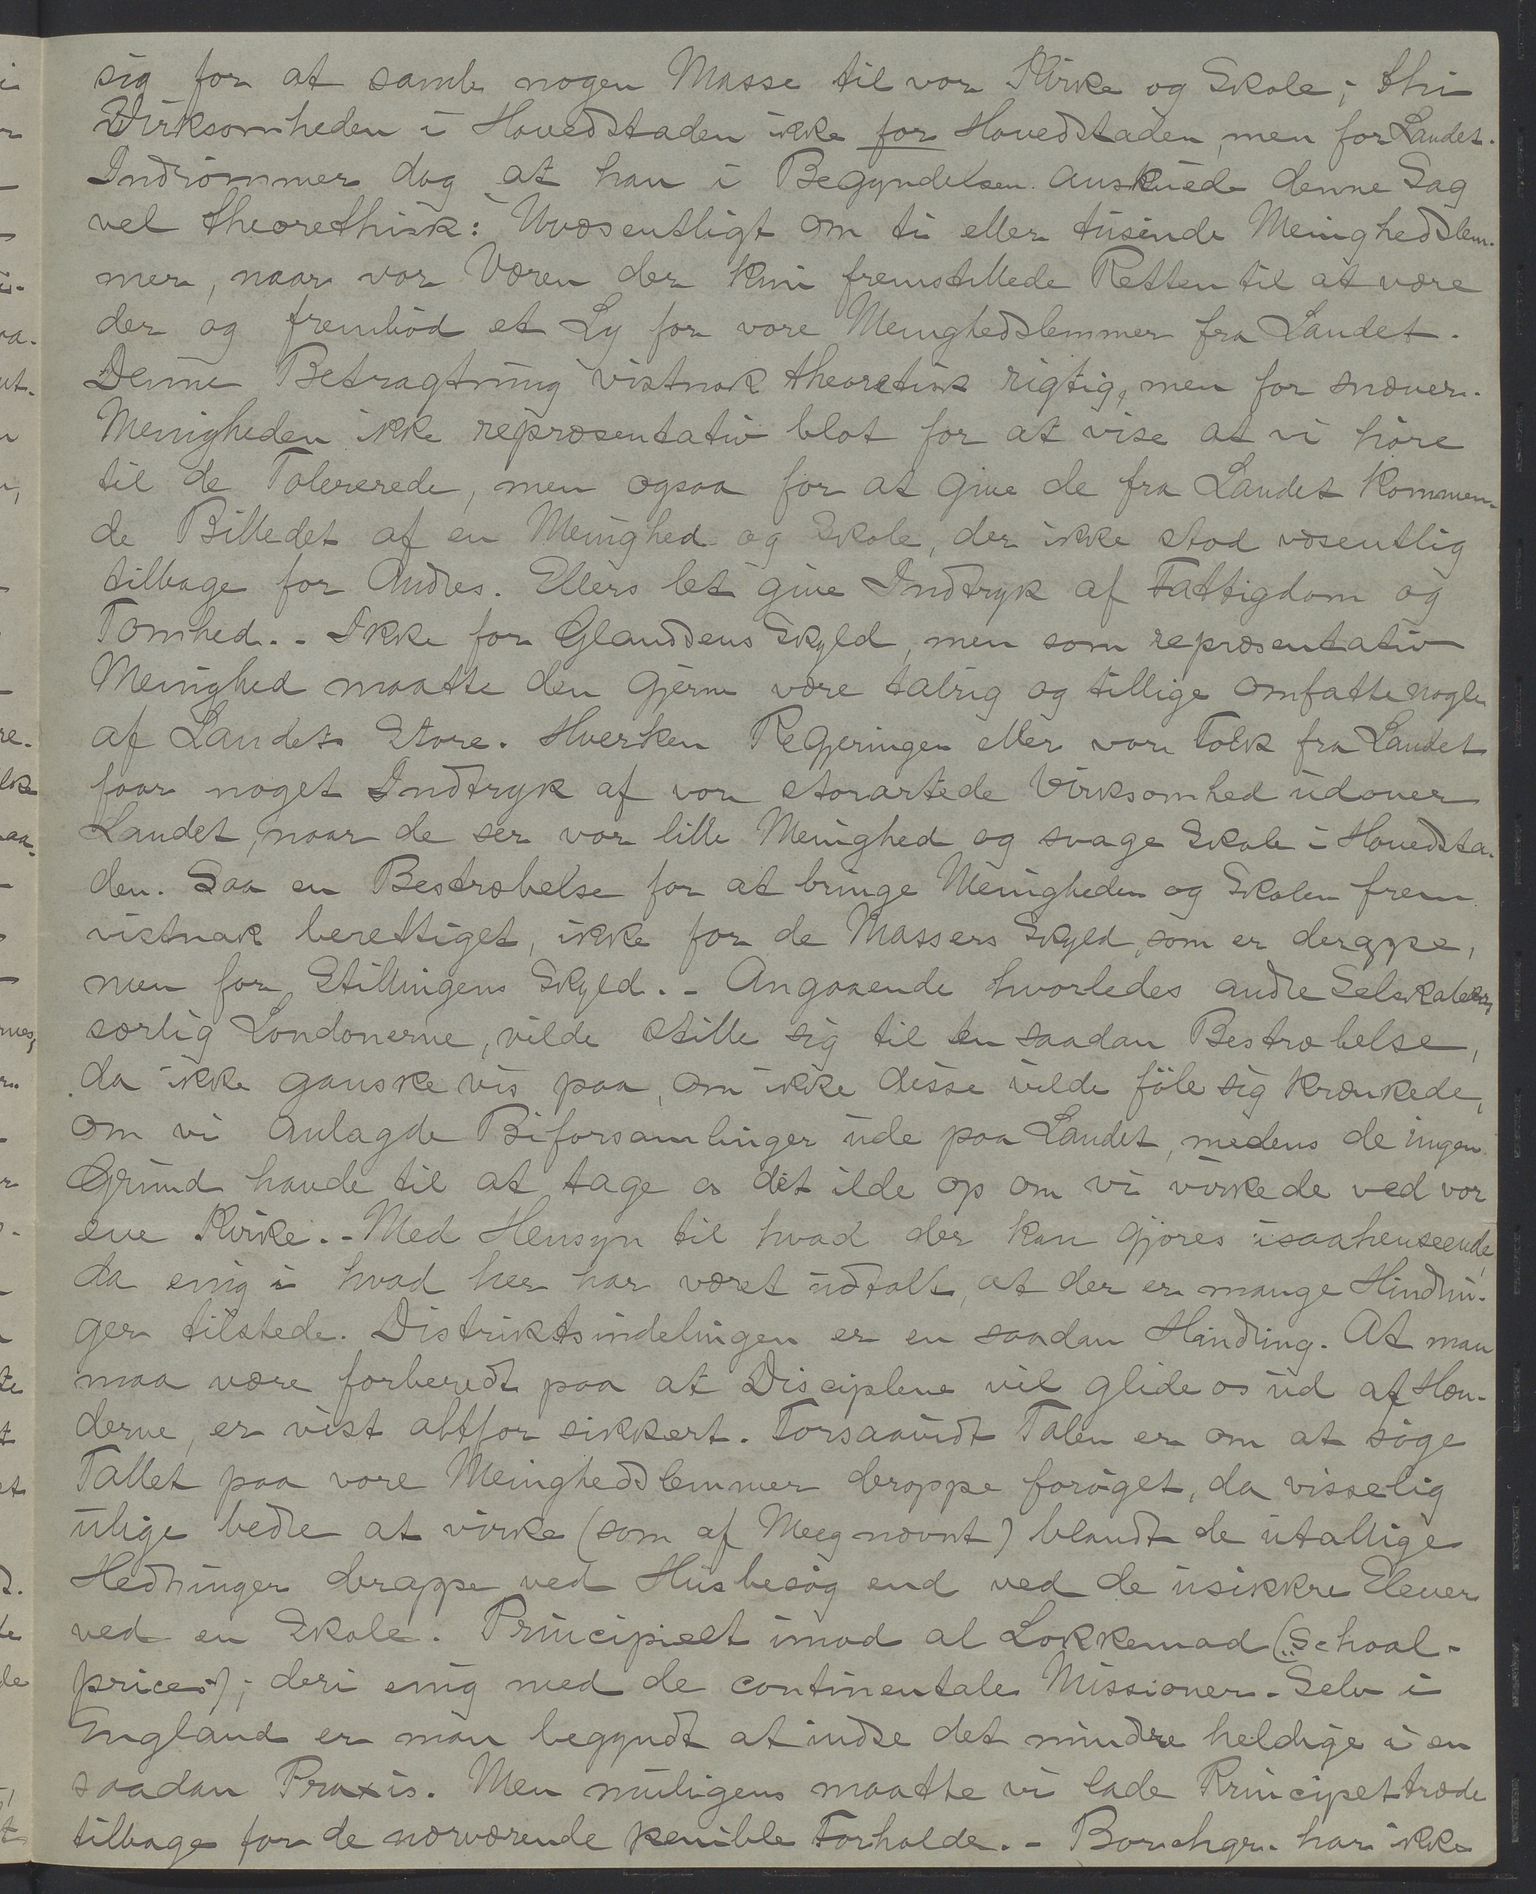 sig for at samle nogen Masse til vor Kirke og Skole; thi
Virksomheden i Hovedstaden ikke for Hovedstaden, men for Landet.
Indrømmer dog at han i Begyndelsen anskuede denne Sag
vel theorethisk: Uvæsentligt om ti eller tusinde Menighedslem-
mer, naar vor Væren der kun fremstillede Retten til at være
der og frembød et Ly for vore Menighedslemmer fra Landet.
Denne Betragtning vistnok theoretisk rigtig, men for snæver.
Menigheden ikke repræsentativ blot for at vise at vi høre
til de Tolererede, men ogsaa for at give de fra Landet Kommen-
de Billedet af en Menighed og Skole, der ikke stod væsentlig
tilbage for Andres. Ellers let give Indtryk af Fattigdom og
Tomhed. - Ikke for Glandsens Skyld, men som repræsentativ
Menighed maatte den gjerne være talrig og tillige omfatte nogle
af Landets Store. Hverken Regjeringen eller vore Folk fra Landet
faar noget Indtryk af vor storartede Virksomhed udover
Landet, naar de ser vor lille Menighed og svage Skole i Hovedsta-
den. Saa en Bestræbelse for at bringe Menigheden og Skolen frem
vistnok berettiget, ikke for de Massers Skyld, som er deroppe,
men for Stillingens Skyld. - Angaaende hvorledes andre Selskaber,
særlig Londonerne, vilde stille sig til en saadan Bestræbelse,
da ikke ganske vis paa, om ikke disse vilde føle sig krænkede,
om vi anlagde Biforsamlinger ude paa Landet, medens de ingen
Grund havde til at tage os det ilde op om vi virkede ved vor
ene Kirke. - Med Hensyn til hvad der kan gjøres isaahenseende,
da enig i hvad her har været udtalt, at der er mange Hindrin-
ger tilstede. Distriktsindelingen er en saadan Hindring. At man
maa være forberedt paa at Disciplene vil glide os ud af Hæn-
derne, er vist altfor sikkert. Forsaavidt Talen er om at søge
Tallet paa vore Menighedslemmer deroppe forøget, da visselig
ulige bedre at virke (som af Meeg nævnt) blandt de utallige
Hedninger deroppe ved Husbesøg end ved de usikkre Elever
ved en Skole. Principielt imod al Lokkemad („School-
prices“); deri enig med de continentale Missioner. Selv i
England er man begyndt at indse det mindre heldige i en
saadan Praxis. Men muligens maatte vi lade Principet træde
tilbage for de nærværende penible Forholde. - Borchgr. har ikke